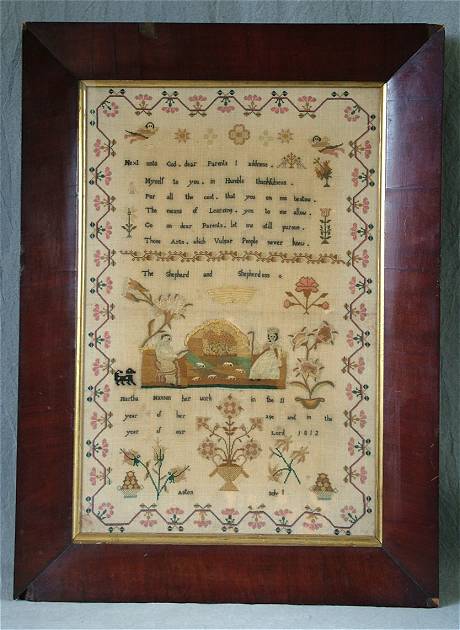 Next unto God, dear Parents I address
Myself to you, in Humble thankfulness.
For all the care, that you on me bestow.
The means of Learning, you to me allow.
Go on dear Parents, let me still pursue.
Those Arts, which Vulgar People never knew.
The Shepherd and Shepherdess
Martha her work in the 11
year of her age and in the
year of our Lord 1812
Aston July 1